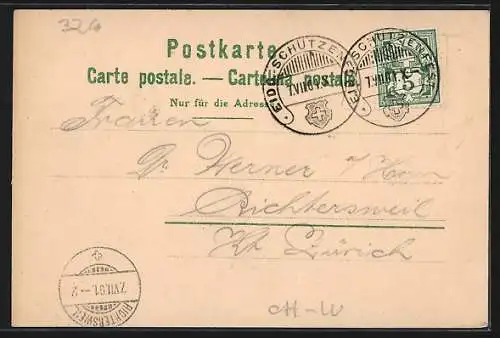 324
Postkarte.
Carte postale. — Cartolina postale.
Nur für die Adresse.
EIDG. SCHÜTZENFEST
7.VII.01
EIDG. SCHÜTZENFEST
7.VII.01
5
Werner z/ Horn
Richtersweil
Kt. Zürich
RICHTERSWEIL
7.VII.01.—2
CH-W